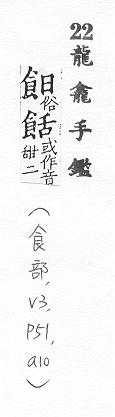 22龍龕手鑑
俗
或作音
甜二
(食部, V3, P51, a10)